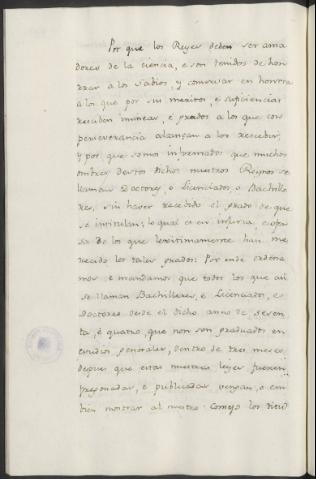 Por que los Reyes deben ser ama
dores de la ciencia, e son tenidos de hon
rrar a los Sabios, y conservar en honrra
a los que por sus meritos, e suficiencias
reciben insignias, é grados a los que con
perseverancia alcanzan a los recebir;
y por que somos informados que muchos
ombres destos dichos nuestros Reynos se
llaman Doctores, o Licenciados, o Bachille
res, sin haver recebido el grado de que
se intitulan; lo qual es en injuria, e ofen
sa de los que legitimamente han me
recido los tales grados: Por ende ordena
mos é mandamos que todos los que asi
se llaman Bachilleres, e Licenciados, e
Doctores desde el dicho anno de seten
ta, é quatro, que non son graduados en
estudios generales, dentro de tres meses
depues que estas nuestras leyes fueren
pregonadas, é publicadas vengan, o em
bien mostrar al nuestro Consejo los titul